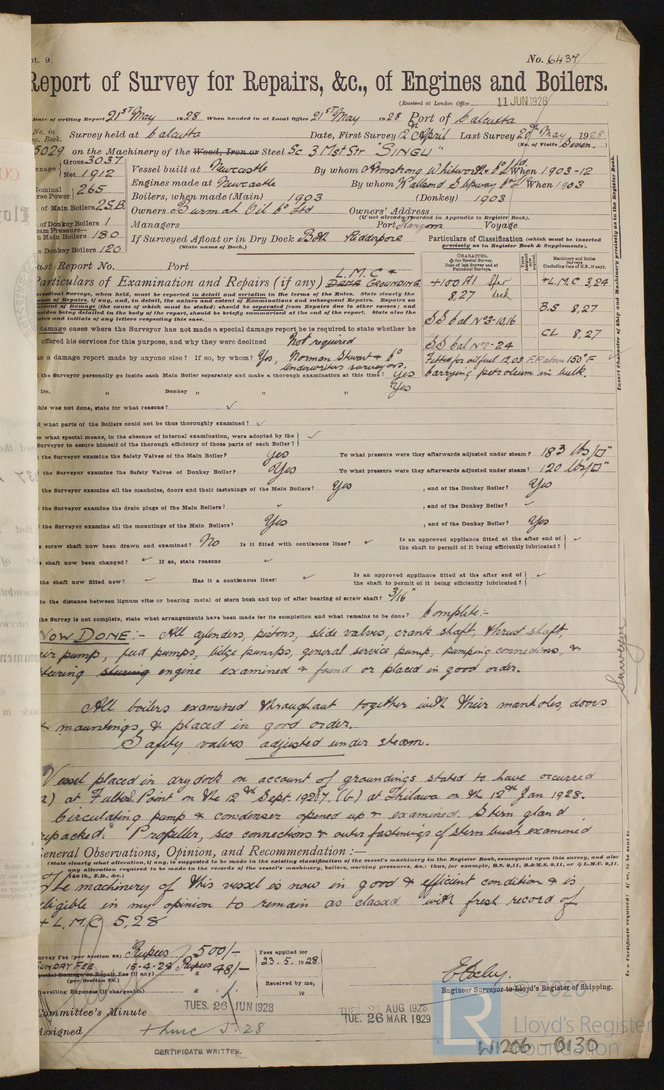 pt. 9.
No. 6437
Report of Survey for Repairs, &c., of Engines and Boilers.
(Received at London Office 11 JUN 1928
Date of writing Report 21ST May 1928 When handed in at Local Office 21ST May 1928 Port of Calcutta
No. in Survey held at Calcutta Date, First Survey 12th April Last Survey 20th May 1928
Reg. Book. (No. of Visits Seven.
5029 on the Machinery of the Wood, Iron or Steel Sc 3 Mst Str "SINGU"
Gross 3037 Vessel built at Newcastle By whom Armstrong Whitworth & Co Ltd When 1903-12
Net 1912
Nominal Horse Power 265 Engines made at Newcastle By whom Wallsend Slipway Co Ld When 1903
of Main Boilers 2S.B. Boilers, when made (Main) 1903 (Donkey) 1903
of Donkey Boilers 1 Owners Burmah Oil Co Ltd Owners' Address
(if not already recorded in Appendix to Register Book).
Managers Port Rangoon Voyage
Main Boilers 180
Donkey Boilers 120 If Surveyed Afloat or in Dry Dock Both Kidderpore
(State name of Dock.)
Particulars of Classification (which must be inserted precisely as in Register Book & Supplements).
Last Report No. Port
L.M.C &
Particulars of Examination and Repairs (if any) GROUNDING.
+100A1
8,27
SS Cal No3-10,16
SS Cal No2-24
+L.M.C 3,24
B.S 8,27
CL 8,27
Fitted for oil fuel 12,03 F.P. above 150°F
Carrying petroleum in bulk.
damage cases where the Surveyor has not made a special damage report he is required to state whether he
offered his services for this purpose, and why they were declined Not required
as a damage report made by anyone else? If so, by whom? Yes, Norman Stewart & Co
Underwriters surveyors.
the Surveyor personally go inside each Main Boiler separately and make a thorough examination at this time? Yes
Do. " Donkey " " " " Yes
this was not done, state for what reasons? ✓
what parts of the Boilers could not be thus thoroughly examined? ✓
what special means, in the absence of internal examination, were adopted by the
Surveyor to assure himself of the thorough efficiency of those parts of each Boiler? ✓
the Surveyor examine the Safety Valves of the Main Boiler? Yes To what pressure were they afterwards adjusted under steam? 183 lbs/□"
the Surveyor examine the Safety Valves of Donkey Boiler? Yes To what pressure were they afterwards adjusted under steam? 120 lbs/□"
the Surveyor examine all the manholes, doors and their fastenings of the Main Boilers? Yes , and of the Donkey Boiler? Yes
the Surveyor examine the drain plugs of the Main Boilers? , and of the Donkey Boiler? ✓
the Surveyor examine all the mountings of the Main Boilers? Yes , and of the Donkey Boiler? Yes
screw shaft now been drawn and examined? No Is it fitted with continuous liner? ✓ Is an approved appliance fitted at the after end of the shaft to permit of it being efficiently lubricated? ✓
shaft now been changed? ✓ If so, state reasons ✓
the shaft now fitted new? ✓ Has it a continuous liner: ✓ Is an approved appliance fitted at the after end of the shaft to permit of it being efficiently lubricated? ✓
is the distance between lignum vitæ or bearing metal of stern bush and top of after bearing of screw shaft? 3/16"
the Survey is not complete, state what arrangements have been made for its completion and what remains to be done? Complete:-
NOW DONE:- All cylinders, pistons, slide valves, crank shaft, thrust shaft,
air pump, feed pumps, bilge pumps, general service pump, pumping connections, &
turning engine examined & found or placed in good order.
All boilers examined throughout together with their manholes, doors
& mountings, & placed in good order.
Safety valves adjusted under steam.
Vessel placed in dry dock on account of groundings stated to have occurred
(a) at Fulta Point on the 12th Sept. 1927. (b) at Thilawa on the 12th Jan 1928.
Circulating pump & condenser opened up & examined. Stern gland
repacked. Propeller, sea connections & outer fastenings of stern bush examined
General Observations, Opinion, and Recommendation:—
(State clearly what alteration, if any, is suggested to be made in the existing classification of the vessel's machinery in the Register Book, consequent upon this survey, and also
The machinery of this vessel is now in good & efficient condition & is
eligible in my opinion to remain as classed with fresh record of
+ L.M.C 5,28
Survey Fee (per Section 28) Rupees 500/-
SUNDAY FEE 15-4-28 Rupees 48/-
Special Damage or Repair Fee (if any)
(per Section 28.)
Travelling Expenses (if chargeable)
Fees applied for
23.5.1928
Received by me,
19
Engineer Surveyor to Lloyd's Register of Shipping.
Committee's Minute TUES. 26 JUN 1928
AUG 1928
TUE. 26 MAR 1929
Assigned + LMC 5.28
CERTIFICATE WRITTEN.
© 2020
LR
Lloyd's Register
Foundation
W1206 - 0130
Insert Character of Ship and Machinery precisely as in the Register Book.
Surveyor
Is a Certificate required? If so, to be sent to